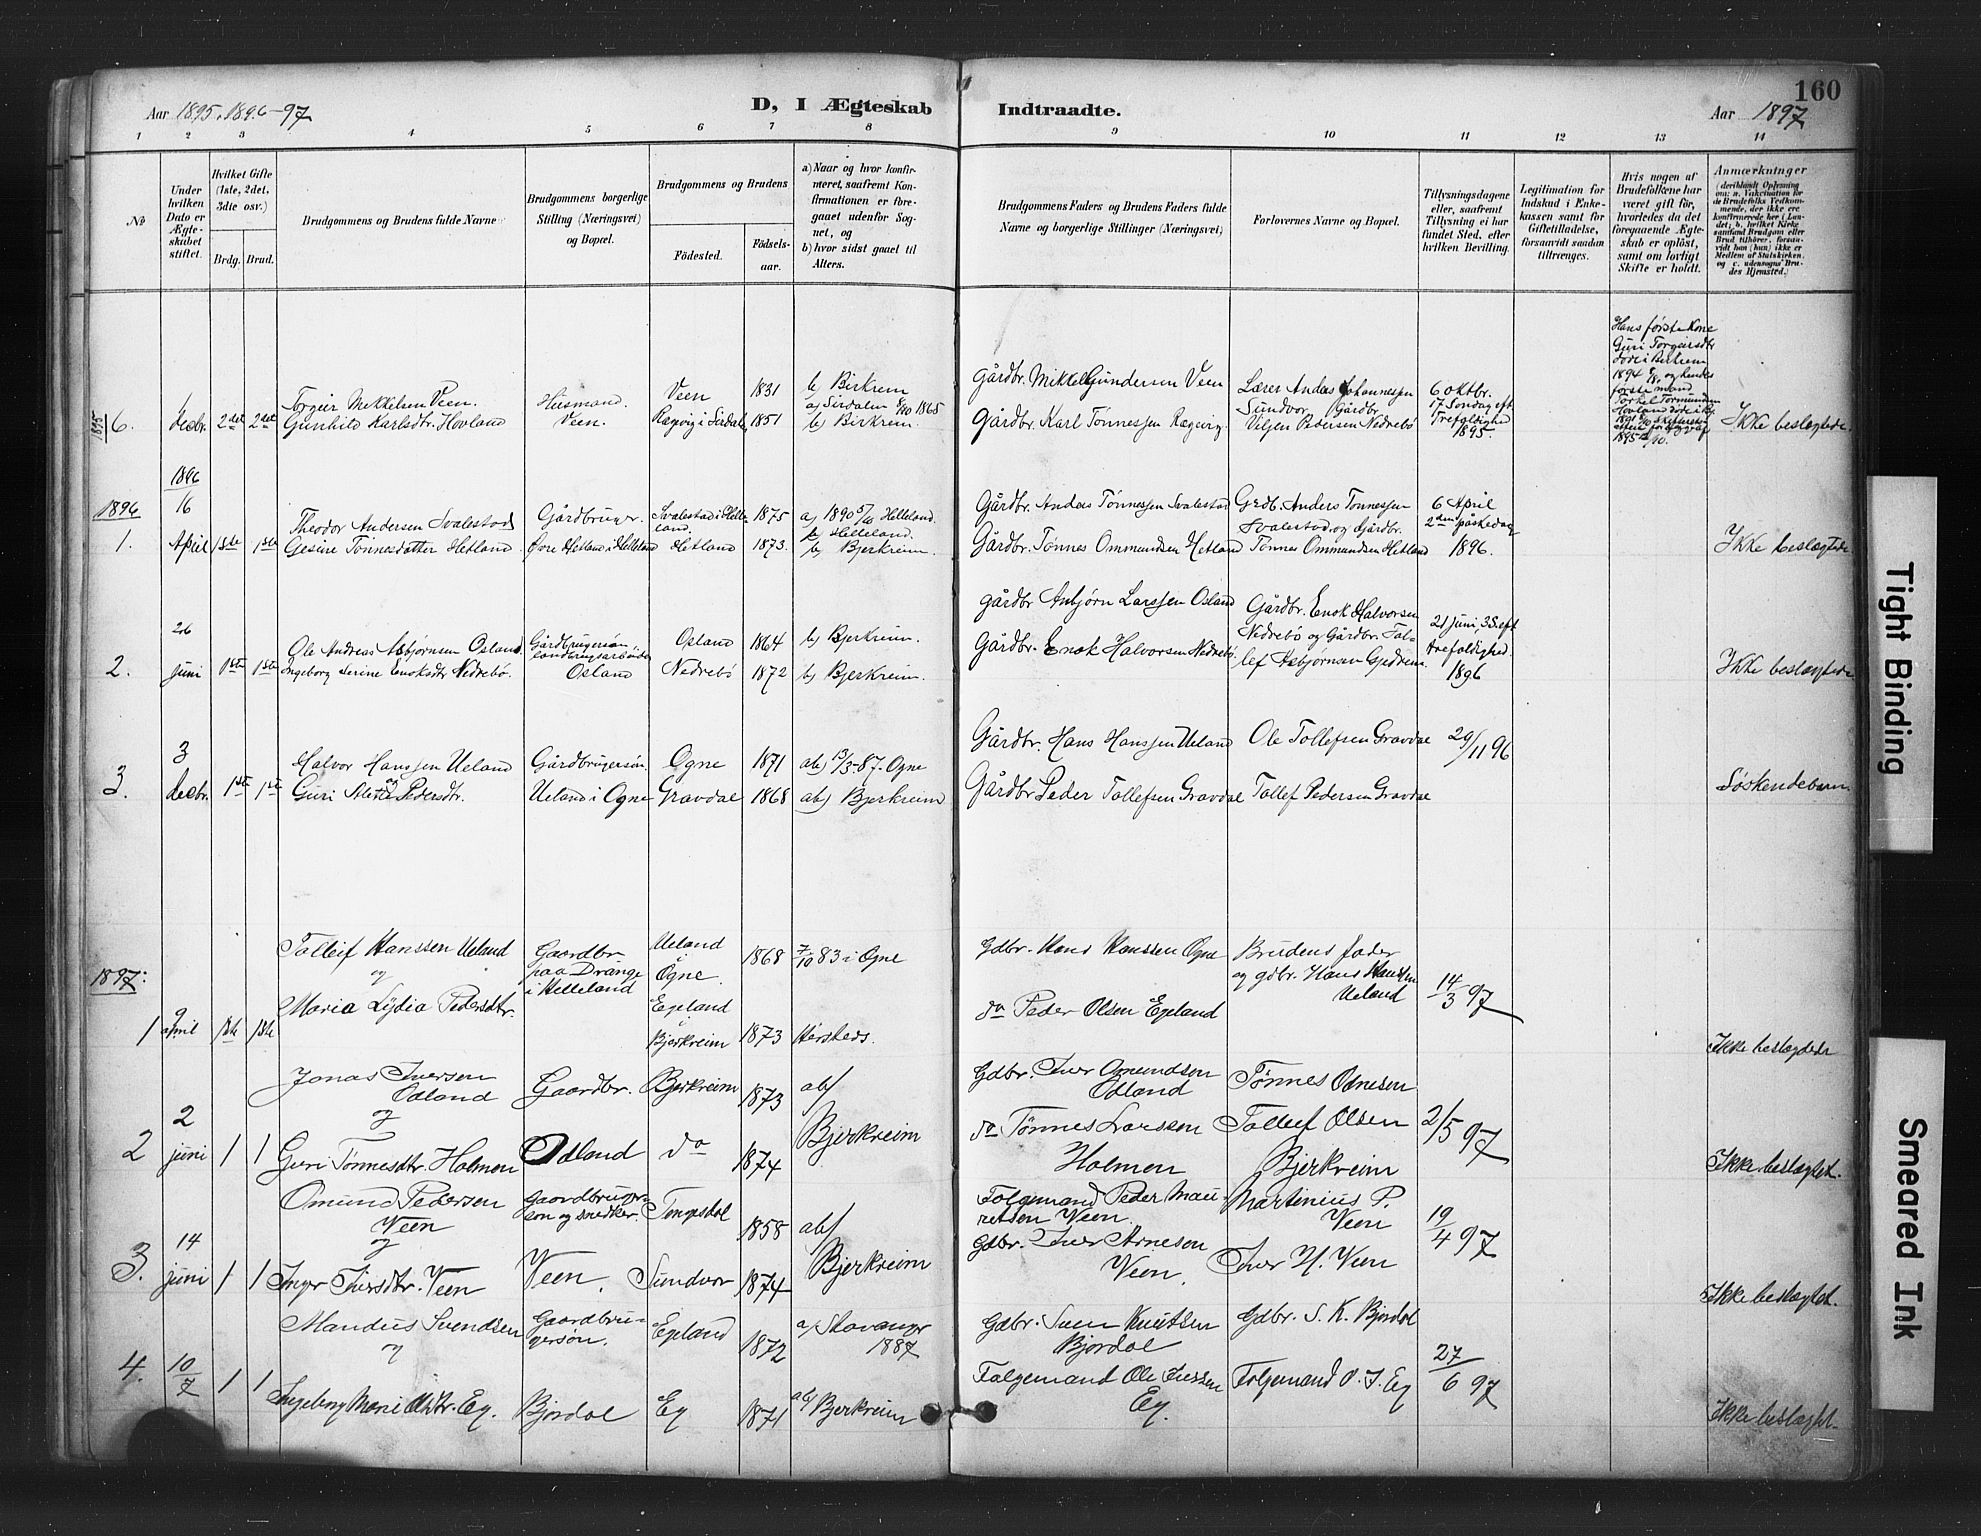 160
Aar 1895, 1896-97
D, I Ægteskab
Indtraadte.
Aar 1897
1 2 3 4 5 6 7 8 9 10 11 12 13 14
No
Under hvilken Dato er Ægteskabet stiftet.
Hvilket Gifte (1ste, 2det, 3die osv.)
Brdg. Brud.
Brudgommens og Brudens fulde Navne
Brudgommens borgerlige Stilling (Næringsvei) og Bopæl.
Brudgommens og Brudens
Fødested.
Fødselsaar.
a) Naar og hvor konfirmeret, saafremt Konfirmationen er foregaaet udenfor Sognet, og
b) hvor sidst gaaet til Alters.
Brudgommens Faders og Brudens Faders fulde Navne og borgerlige Stillinger (Næringsvei)
Forlovernes Navne og Bopæl.
Tillysningsdagene eller, saafremt Tillysning ei har fundet Sted, efter hvilken Bevilling.
Legitimation for Indskud i Enkekassen samt for Giftetilladelse, forsaavidt saadan tiltrænges.
Hvis nogen af Brudefolkene har været gift før, hvorledes da det foregaaende Ægteskab er opløst, samt om lovligt Skifte er holdt.
Anmærkninger
(deriblandt Oplysning om: a. Vakcination for de Brudefolks Vedkommende, der ikke ere konfirmerede her i Landet; b. hvilket Kirkesamfund Brudgom eller Brud tilhører, forsaavidt han (hun) ikke er Medlem af Statskirken, og c. udensogns Brudes Hjemsted.)
1895
6. decbr. 2det 2det
Torgeir Mikkelsen Veen.
Gunhild Karlsdtr. Hovland
Husmand.
Veen.
Veen 1831 b, Birkrem
Ragvig i Sirdal, 1851 a, Sirdalen 1865
b, Birkrem.
Gårdbr. Mikkel Gundersen Veen
Gårdbr. Karl Tønnessen Ragvig
Lærer Andas Johannesen
Sundvor Gårdbr.
Viljen Pedersen Nedrebö
6 oktbr.
17 Søndag eft
Trefoldighed
1895.
Hans første Kone
Guri Torgeirsdtr
døde i Birkrem
1894 og hendes
første mand
Torkel Tormundsen
Hovland døde
Ikke beslægtede.
1896
1896
1. 16 April 1ste 1ste
Theodor Andersen Svalestad
Gesine Tønnesdatter Hetland
Gårdbruger.
Øvre Hetland i Helleland
Svalestad i Helleland 1875 a, 1890 5/10 Helleland.
b, Helleland.
Hetland 1873. b, Bjerkreim.
Gårdbr. Andas Tønnesen Svalestad
Gårdbr. Tønnes Ommundsen Hetland
Grdb. Anders Tønnesen
Svalestad og Gårdbr.
Tønnes Ommundsen Hetland
6 April
2den påskedag
1896.
Ikke beslægtede.
2. 26 juni 1ste 1ste
Ole Andreas Asbjørnsen Osland.
Ingeborg Serine Enoksdtr Nedrebö.
Gårdbrugersøn
landbrugsarbeider
Osland
Osland 1864 b, Bjerkreim.
Nedrebö 1872 b, Bjerkreim.
Gårdbr Asbjørn Larssen Osland
Gårdbr. Enok Halvorsen Nedrebö.
Gårdbr. Enok Halvorsen
Nedrebö og Gårdbr. Tollef Asbjørnsen Gjedrem.
21 juni, 3S. eft
trefoldighed.
1896
Ikke beslægtede
3. 3 decbr. 1ste 1ste
Halvor Hanssen Ueland
og
Guri Pedersdtr.
Gårdbrugersøn.
Ueland i Ogne
Ogne 1871 ab) 13/3-87. Ogne
Gravdal 1868 ab) Bjerkreim
Gårdbr. Hans Hanssen Ueland
Gårdbr Peder Tollefsen Gravdal
Ole Tollefsen Gravdal
Tollef Pedersen Gravdal
29/11 96
Søskendebarn
1897:
1 9 april 1ste 1ste
Tolleif Hanssen Ueland
og
Maria Lydia Pedersdtr.
Gaardbr.
paa Drange
i Helleland
Ueland
i
Ogne. 1868 7/10 83 i Ogne
Egeland
i
Bjerkreim 1873 Hersteds.
Gdbr. Hans Hanssen Ogne
do Peder Olsen Egeland
Brudens fader
og gdbr. Hans Hanssen
Ueland
14/3 97
Ikke beslægtede
2 2 juni 1 1
Jonas Iversen
Odland
og
Guri Tønnesdtr. Holmen
Gaardbr.
Odland
Bjerkreim 1873 ab/
do 1874 Bjerkreim
Gdbr. Iver Omundson
Odland
do Tønnes Larssen
Holmen
Tønnes Odnesen
Tolleif Olsen
Bjerkreim
2/5 97
Ikke beslægtet.
3. 14 juni 1 1
Omund Pedersen
Veen
og
Inger Iversdtr. Veen
Gaardbruger-
søn og snedker.
Veen.
Tengesdal 1858 ab/
Sundvor 1874 Bjerkreim
Folgemand Peder Mau-
ritsen Veen.
Gdbr. Iver Arneson
Veen.
Martinius P.
Veen
Iver H. Veen
19/4 97
Ikke beslægtet.
4. 10/7 1 1
Mandius Svendsen
og
Ingeborg Marie Olsdtr. Eg.
Gaardbru-
gersøn.
Bjørdal
Egeland 1872 a/ Stavanger
1887
Eg 1871 ab/ Bjerkreim
Gdbr. Sven Knutsen
Bjordal
Folgemand Ole Iversen
Eg.
Gdbr. S. K. Bjordal
Folgemand O. I. Eg
27/6 97
Ikke beslægtet.
Tight Binding
Smeared Ink